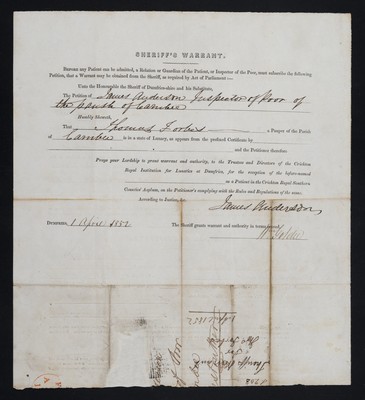 SHERIFF'S WARRANT.
BEFORE any Patient can be admitted, a Relation or Guardian of the Patient, or Inspector of the Poor, must subscribe the following
Petition, that a Warrant may be obtained from the Sheriff, as required by Act of Parliament:—
Unto the Honorable the Sheriff of Dumfries-shire and his Substitute,
The Petition of James Anderson Inspector of Poor of
the parish of Cambee
Humbly Sheweth,
That Thomas Forbes a Pauper of the Parish
Cambee is in a state of Lunacy, as appears from the prefixed Certificate by
and the Petitioner therefore
Prays your Lordship to grant warrant and authority, to the Trustees and Directors of the Crichton
Royal Institution for Lunatics at Dumfries, for the reception of the before-named
as a Patient in the Crichton Royal Southern
Counties' Asylum, on the Petitioner's complying with the Rules and Regulations of the same.
According to Justice, &c.
James Anderson
DUMFRIES, 1 April 1852 The Sheriff grants warrant and authority in terms
1 April 1852
Thos Forbes
for
Sheriffs Warrant